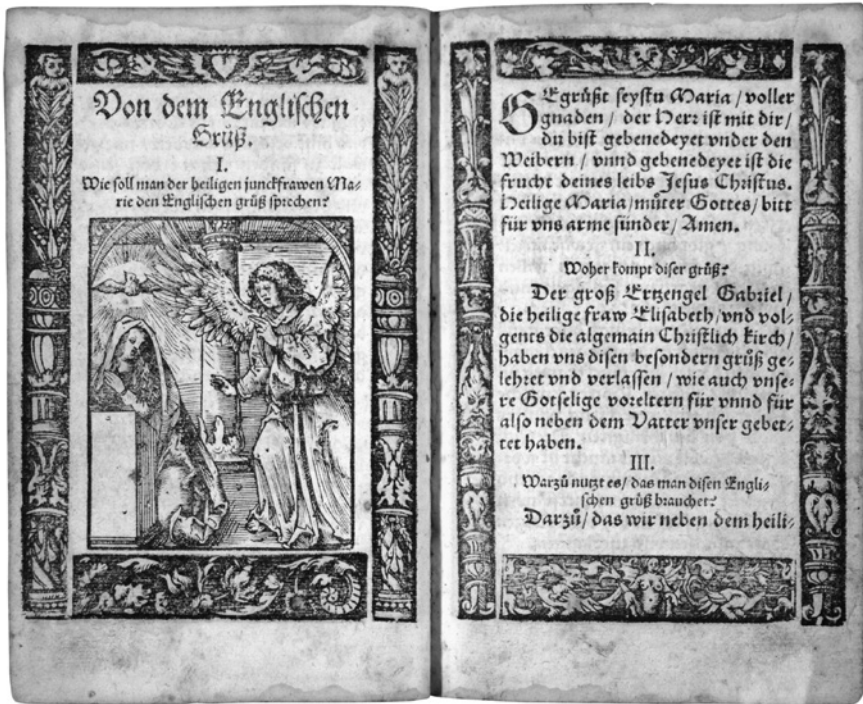 Von dem Englischen
Grůß.
I.
Wie soll man der heiligen junckfrawen Ma-
rie den Englischen grůß sprechen?
GEgrůßt seystu Maria / voller
gnaden / der Herr ist mit dir /
du bist gebenedeyet vnder den
Weibern / vnnd gebenedeyet ist die
frucht deines leibs Jesus Christus.
Heilige Maria / můter Gottes / bitt
für vns arme sünder / Amen.
II.
Woher kompt diser grůß?
Der groß Ertzengel Gabriel /
die heilige fraw Elisabeth / vnd vol-
gents die algemain Christlich kirch /
haben vns disen besondern grůß ge-
lehret vnd verlassen / wie auch vnse-
re Gotselige voreltern für vnnd für
also neben dem Vatter vnser gebet-
tet haben.
III.
Warzů nutzt es / das man disen Engli-
schen grůß brauchet?
Darzů / das wir neben dem heili-